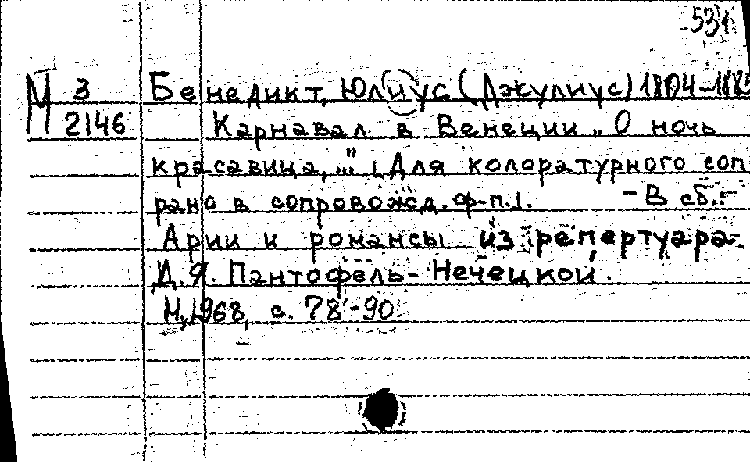 531
М 3
2146
Бенедикт, Юлиус (Джулиус) 1804-1885
Карнавал в Венеции „О ночь
красавица,..." [Для колоратурного соп
рано в сопровожд. ф-п.]. - В сб.:
Арии и романсы из репертуара
Д.Я. Пантофель-Нечецкой.
М, 1968, с. 78-90